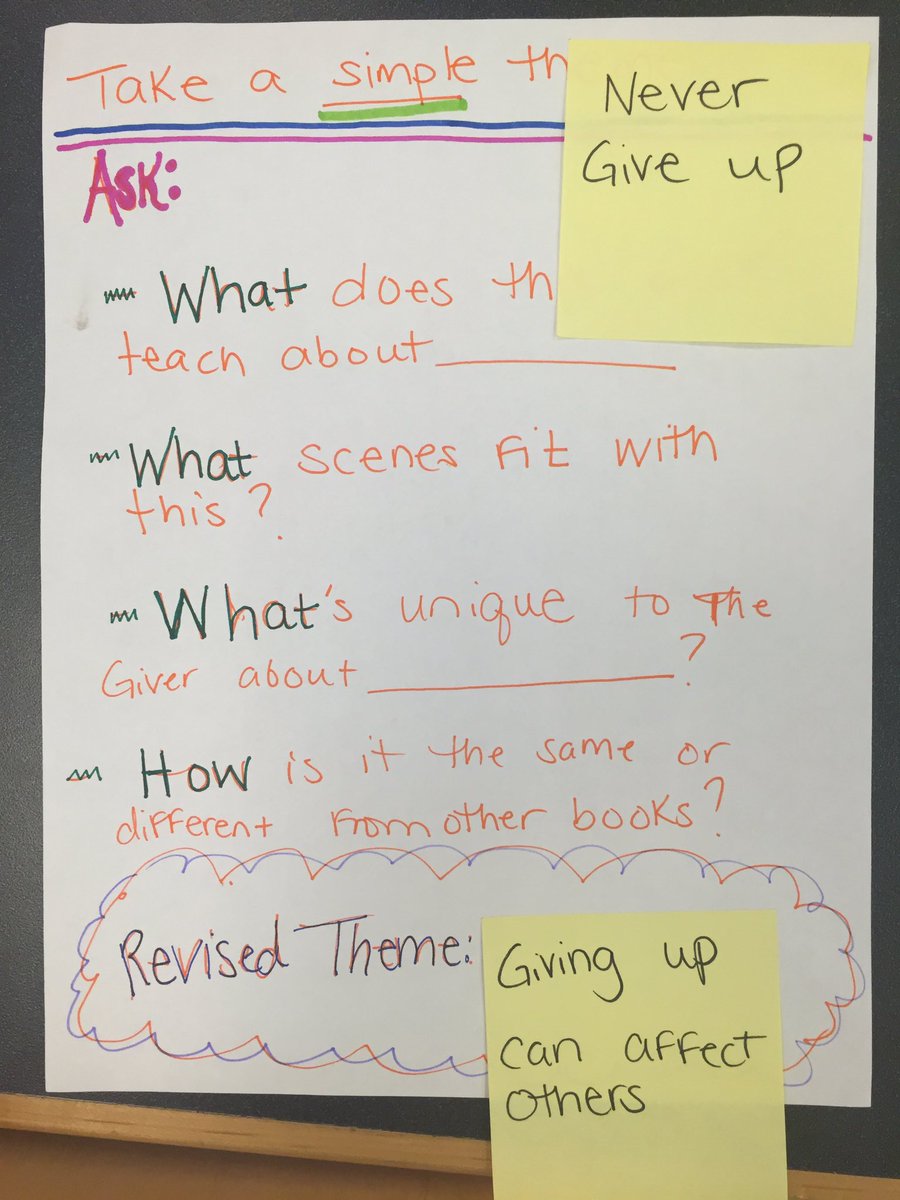 Take a simple th
Never
Give up
Ask:
What does th
teach about
What scenes fit with
this?
What's unique to The
Giver about ?
How is it the same or
different from other books?
Revised Theme:
Giving up
can affect
others